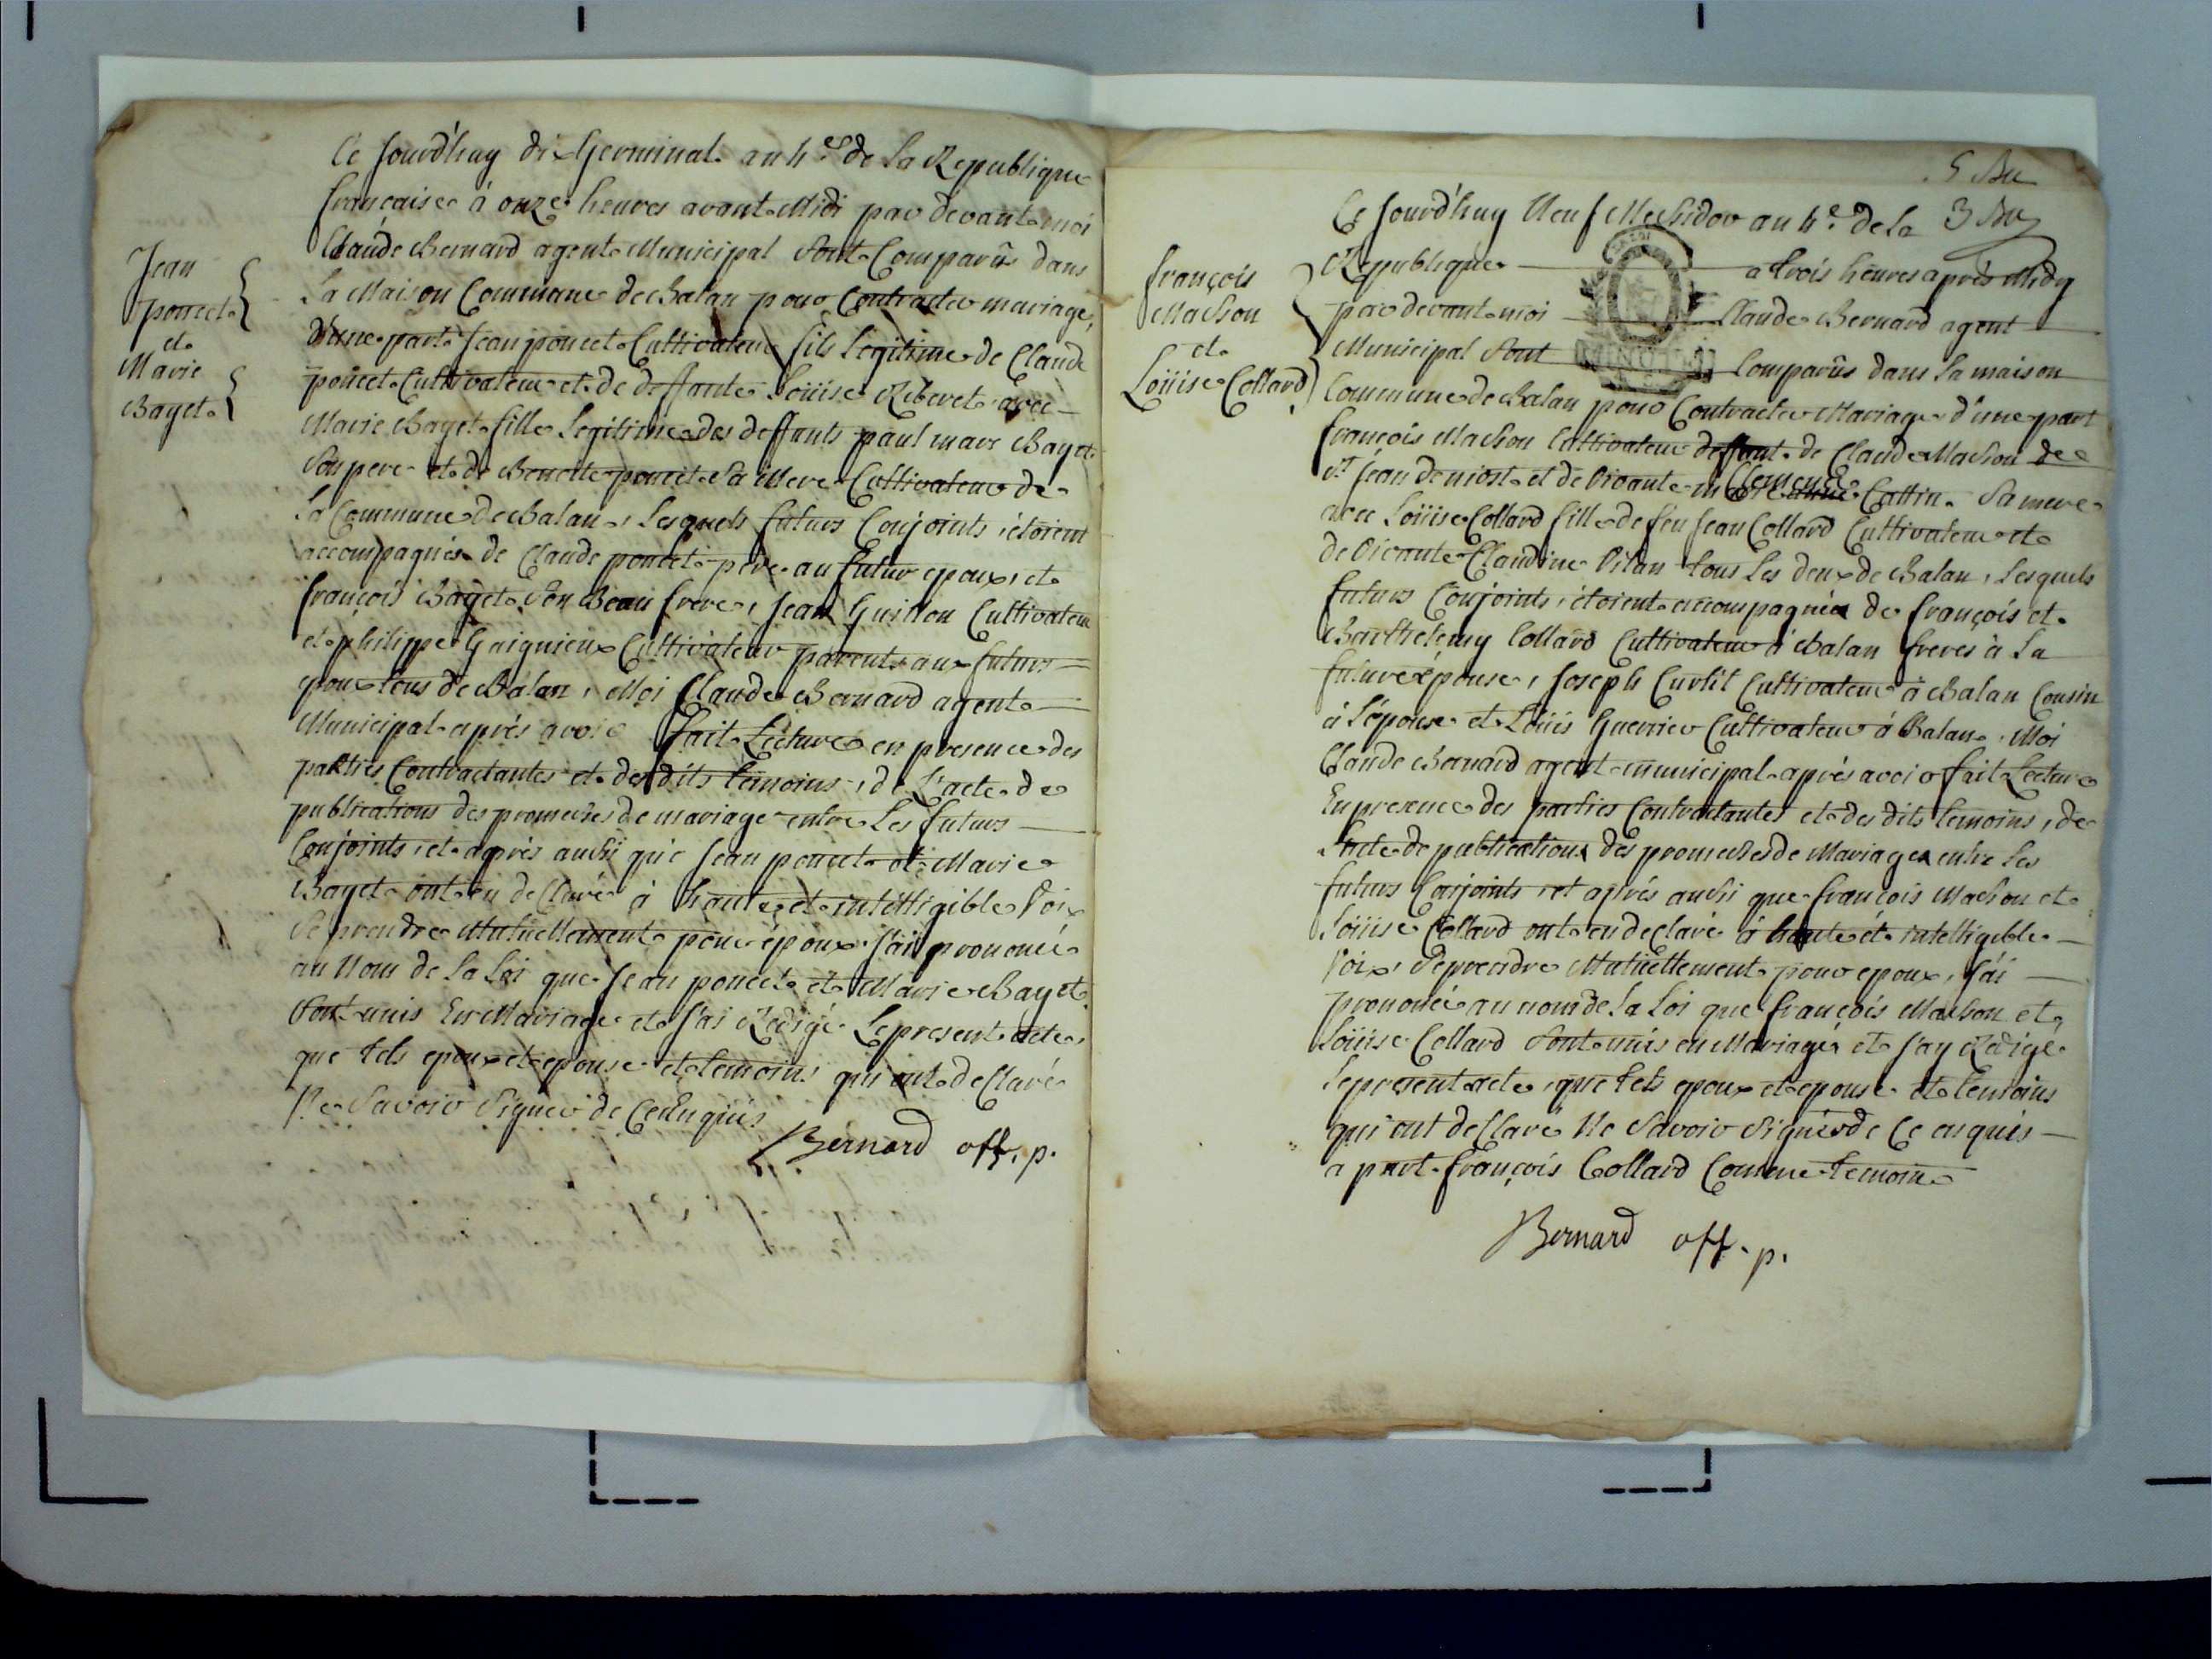 Jean
poncet
et
Marie
Bayet
Ce Jourd'huy dix Germinal an 4.e de la Republique
francaise à onze heures avant Midi par devant moi
Claude Bernard agent Municipal sont Comparûs dans
La Maison Commune de Balan pour Contracter mariage,
d'une part Jean poncet Cultivateur fils Légitime de Claude
poncet Cultivateur et de deffunte Loüise Riberet avec
Marie Bayet fille Légitime des deffunts paul marc Bayet
Son pere et de Benoite poncet Sa Mere Cultivateur de
La Commune de Balan, Lesquels futurs Conjoints, étoient
accompagnés de Claude poncet pere au futur epoux, et
françois Bayet son Beau frere, Jean Guillon Cultivateur
et philippe Guignieux Cultivateur parents aux futurs
epoux tous de Balan, Moi Claude Bernard agent
Municipal après avoir fait Lecture en presence des
parties Contractantes et des dits temoins, de L'acte de
publications des promesses de mariage entre Les futurs
Conjoints, et après aussi que Jean poncet et Marie
Bayet ont eu deClaré à haute et intelligible Voix
Se prendre Mutuellement pour époux. J'ai prononcé
au Nom de La Loi que Jean poncet et Marie Bayet
Sont unis En Mariage et J'ai Redigé Le present acte,
que tels epoux et epouse et temoins qui ont deClaré
Ne Savoir Signer de Ce Enquis
Bernard off. p.
5 Bu
3 Bu
françois
Machon
et
Loüise Collard
Ce Jourd'huy Neuf Messidor an 4.e de la
Republique a trois heures après Midy
par devant moi Claude Bernard agent
Municipal sont Comparûs dans La maison
Commune de Balan pour Contracter Mariage d'une part
francois Machon Cultivateur deffunt de Claude Machon de
st Jean de niost et de Vivante Clemence Cottin Sa mere
avec Loüise Collard fille de feu Jean Collard Cultivateur et
de Vivante Claudine Vilan tous Les deux de Balan, Lesquels
futurs Conjoints, étoient accompagnés de françois et
Barthelemy Collard Cultivateur à Balan freres à La
future épouse, Joseph Curtil Cultivateur à Balan Cousin
à L'épouse et Loüis Guerrier Cultivateur à Balan. Moi
Claude Bernard agent municipal après avoir fait Lecture
En presence des parties Contractantes et des dits temoins, de
L'acte de publications des promesses de Mariages entre Les
futurs Conjoints, et après aussi que francois Machon et
Loüise Collard ont eu declaré à haute et intelligible
Voix, Se prendre Mutuellement pour epoux, J'ai
prononcé au nom de La Loi que françois Machon et
Loüise Collard Sont unis en Mariage, et J'ay Redigé
Le present acte, que tels epoux et epouse et temoins
qui ont deClaré Ne Savoir Signer de Ce enquis
a part françois Collard Comme temoin
Bernard off. p.